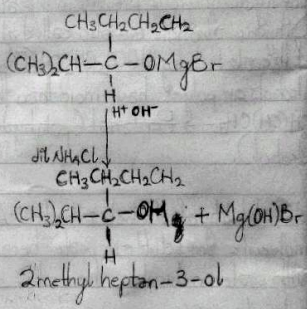 CH3CH2CH2CH2
(CH3)2CH-C-OMgBr
H
H+ OH-
dil NH4Cl
CH3CH2CH2CH2
(CH3)2CH-C-OH + Mg(OH)Br
H
2methyl heptan-3-ol